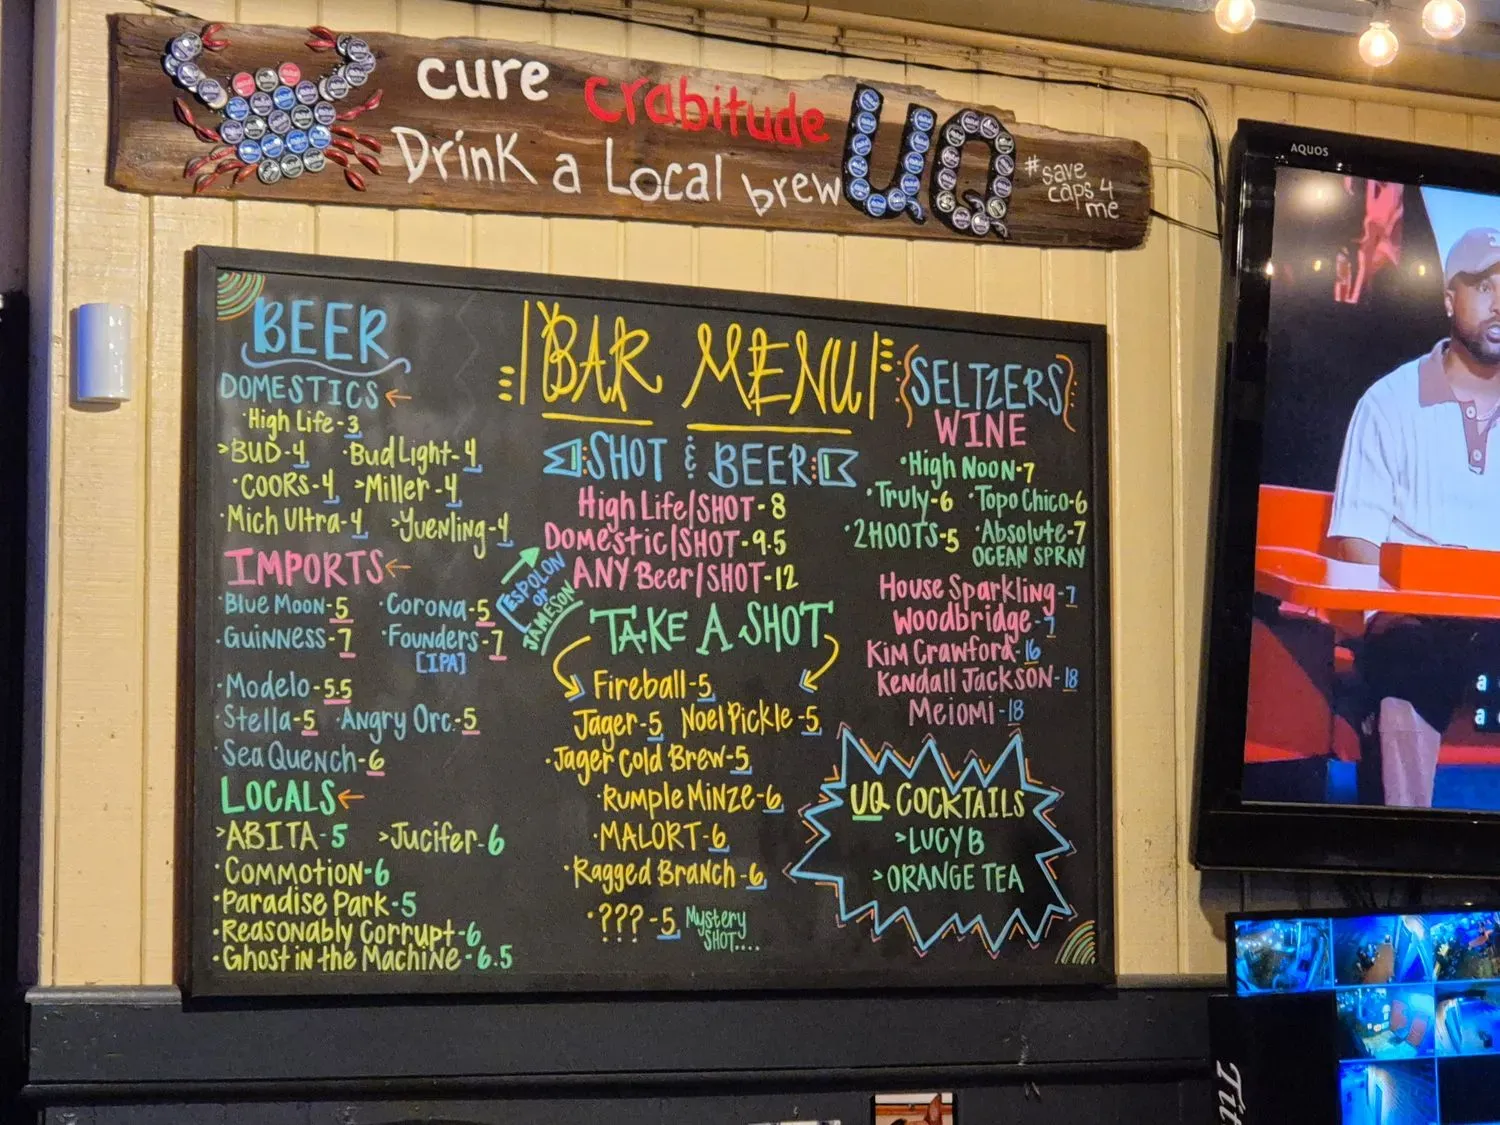 cure crabitude
Drink a Local brew UQ
#save
caps 4
me
AQUOS
BEER
DOMESTICS
High Life-3
BUD-4 Bud Light-4
COORS-4 Miller-4
Mich Ultra-4 Yuenling-4
IMPORTS
Blue Moon-5 Corona-5
Guinness-7 Founders-7
[IPA]
Modelo-5.5
Stella-5 Angry Orc.-5
Sea Quench-6
LOCALS
ABITA-5 Jucifer-6
Commotion-6
Paradise Park-5
Reasonably Corrupt-6
Ghost in the Machine-6.5
BAR MENU
SHOT & BEER
High Life/SHOT-8
Domestic/SHOT-9.5
ANY Beer/SHOT-12
ESPOLON
or
JAMESON
TAKE A SHOT
Fireball-5
Jager-5 Noel Pickle-5
Jager Cold Brew-5
Rumple Minze-6
MALORT-6
Ragged Branch-6
???-5 Mystery
SHOT....
SELTZERS
WINE
High Noon-7
Truly-6 Topo Chico-6
2HOOTS-5 Absolute-7
OCEAN SPRAY
House Sparkling-7
Woodbridge-7
Kim Crawford-16
Kendall Jackson-18
Meiomi-18
UQ COCKTAILS
LUCY B
ORANGE TEA
a
a
Tit